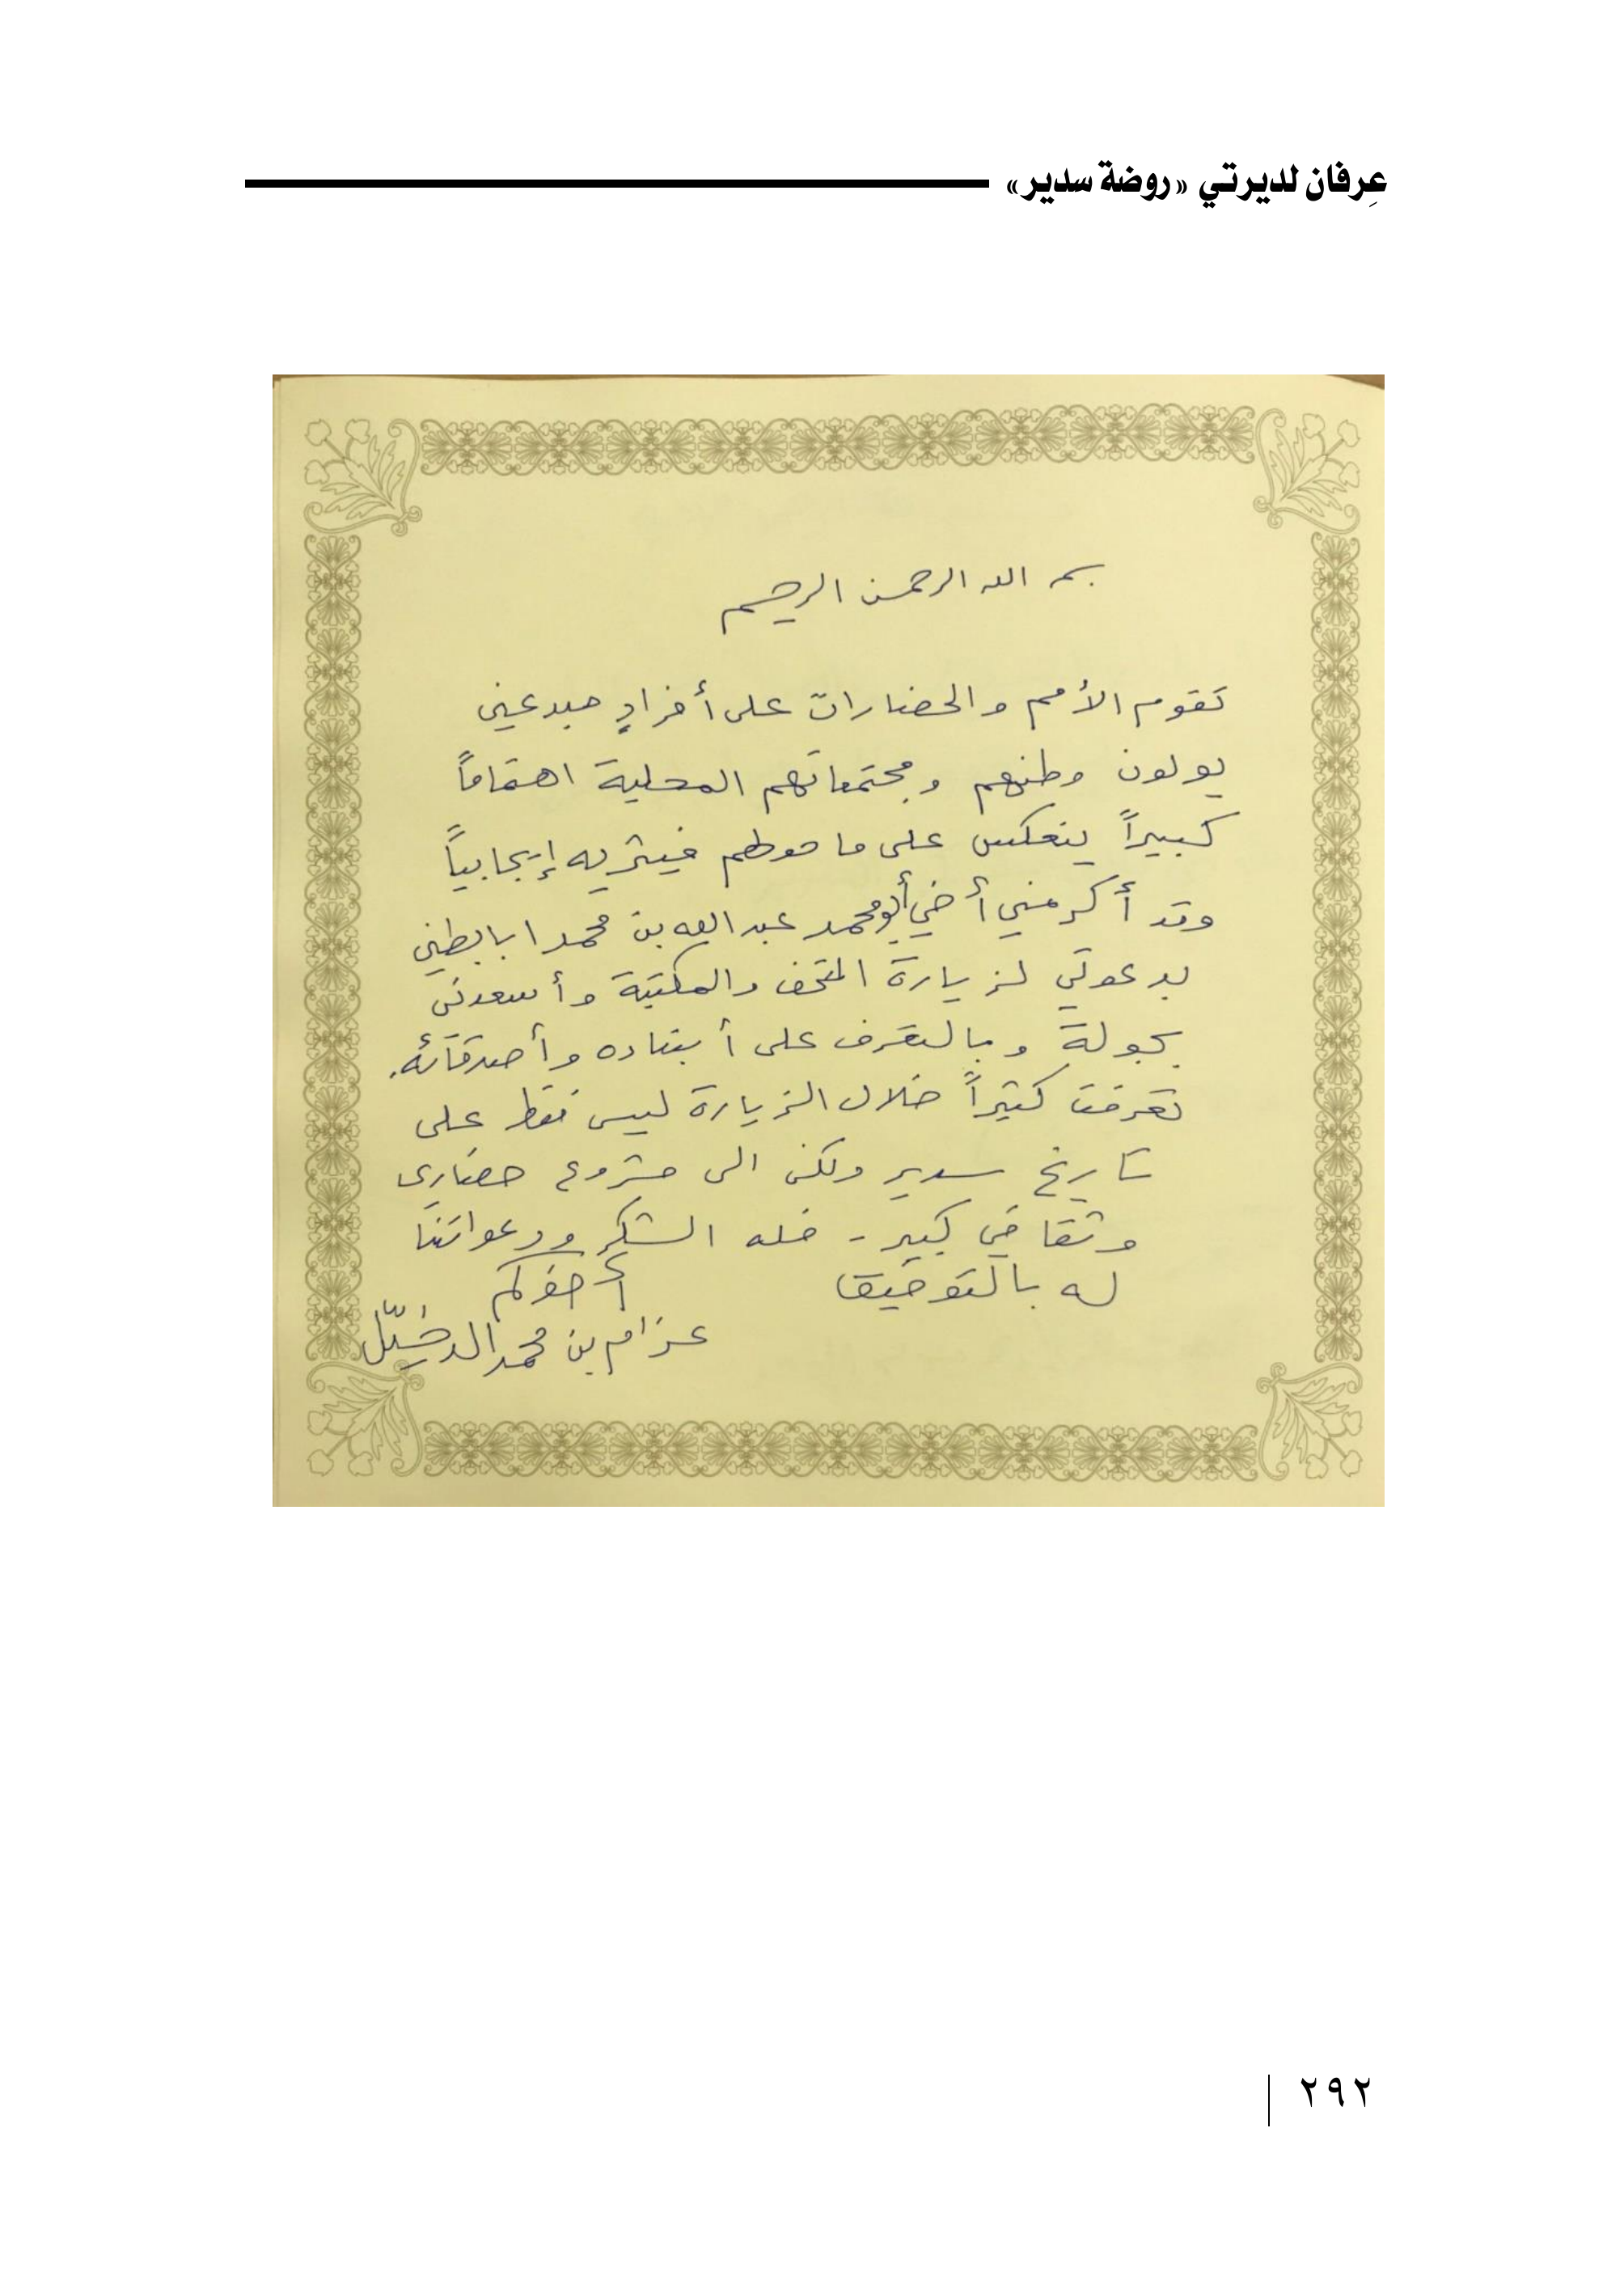 عِرفان لديرتي «روضة سدير»
بسم الله الرحمن الرحيم
تقوم الأمم والحضارات على أفرادٍ مبدعين
يولون وطنهم ومجتمعاتهم المحلية اهتماماً
كبيراً ينعكس على ما حولهم فيثريه إيجابياً
وقد أكرمني أخي أبو محمد عبدالله بن محمد ابابطين
بدعوتي لزيارة المتحف والمكتبة وأسعدني
بجولة وبالتعرف على أبناءه وأصدقائه.
تعرفت كثيراً خلال الزيارة ليس فقط على
تاريخ سدير ولكن الى مشروع حضاري
وثقافي كبير - فله الشكر ودعواتنا
له بالتوفيق
أخوكم
عزام بن محمد الدخيّل
٢٩٢